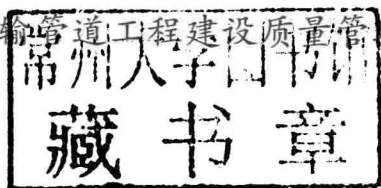 输管道工程建设质量管
常州大学图书馆
藏书章